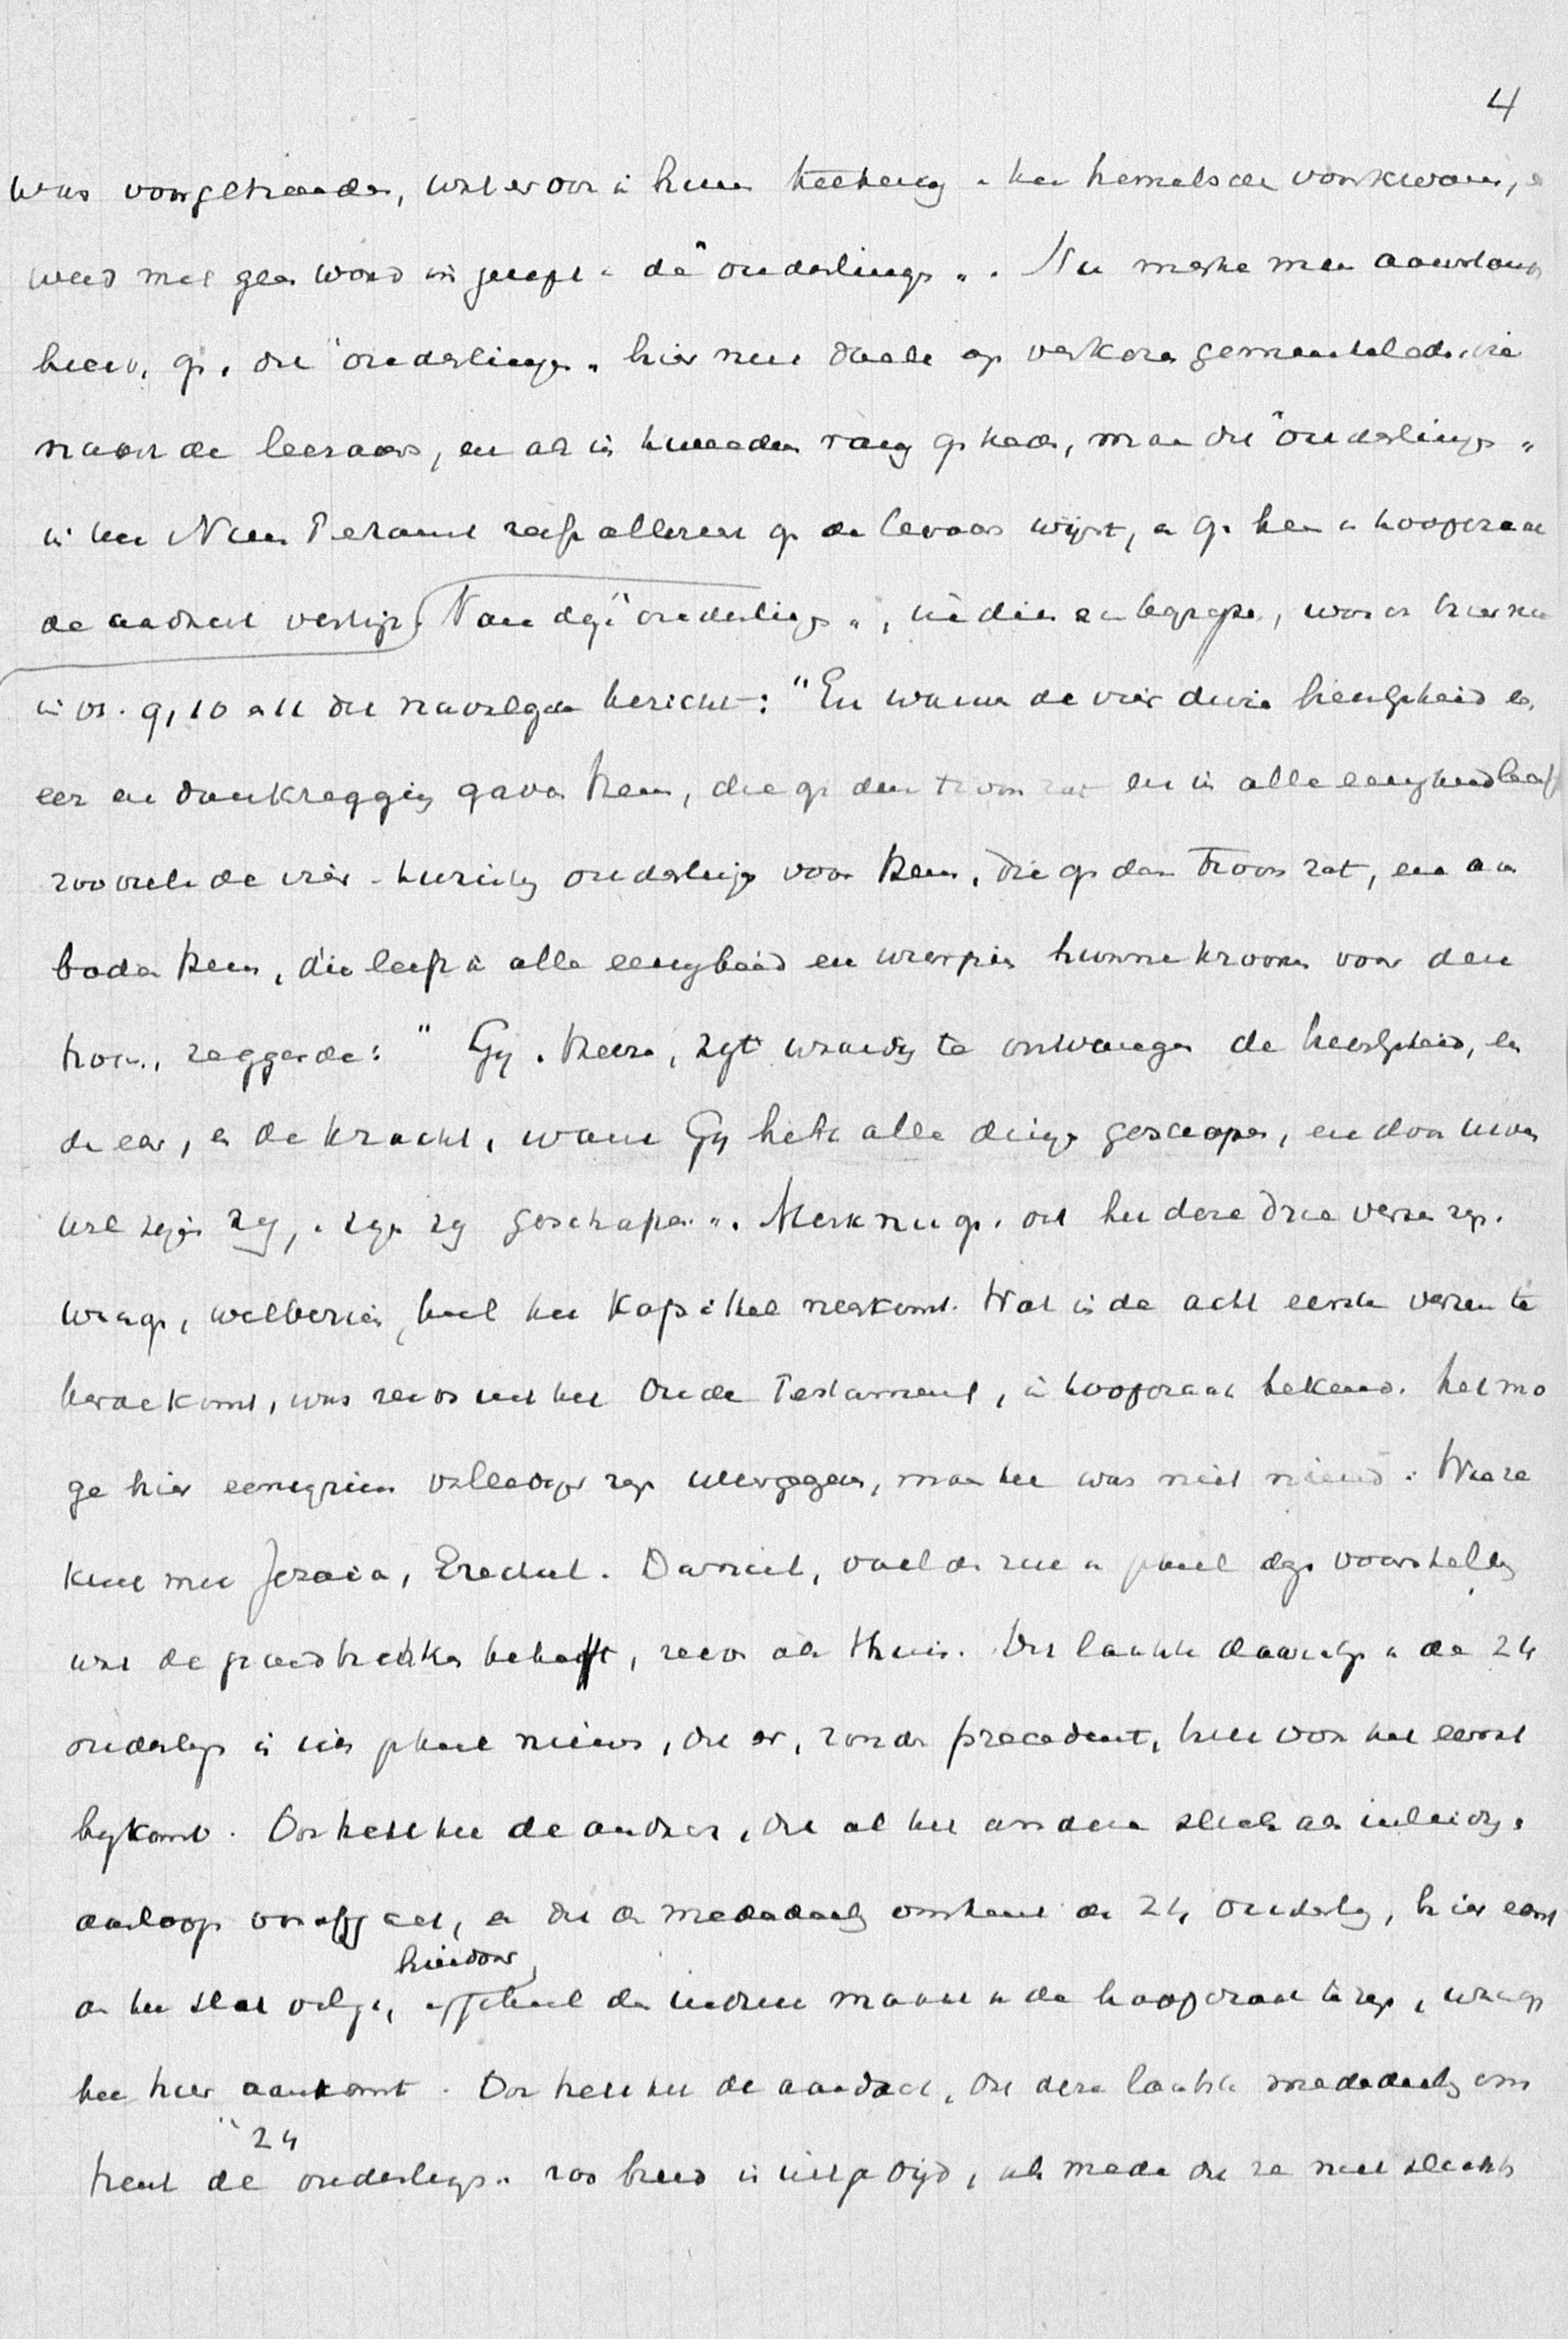 4
was voorgetreden, wat er ook in hun teekening in het hemelsche voorkwam, en
werd met geen woord in gerept in de "ouderlingen". Nu merke men aanstonds
hierbij op, dat "ouderlingen" hier niet doelt op verkoren gemeenteleden, die
naast de leeraars, en als in tweeden rang optreden, maar dat "ouderlingen"
in het Nieuwe Testament zelfs allereerst op de leeraars wijst, en op hen in hoofdzaak
de aandacht vestigt. Van deze "ouderlingen", in dien zin begrepen, wordt er hier nu
in vs. 9, 10 en 11 dit navolgende bericht: "En wanneer de vier dieren heerlijkheid en
eer en dankzegging gaven Hem, die op den troon zat en in alle eeuwigheid leeft
zoo vielen de vier-en-twintig ouderlingen voor Hem, die op den troon zat, en aan
baden Hem, die leeft in alle eeuwigheid en wierpen hunne kroonen voor den
troon, zeggende: "Gij, Heere, zijt waardig te ontvangen de heerlijkheid, en
de eer, en de kracht, want Gij hebt alle dingen geschapen, en door uwen
wil zijn zij, en zijn zij geschapen". Merk nu op, dat het deze drie verzen zijn,
waarop, welbezien, heel het kapittel neerkomt. Wat in de acht eerste verzen te
berde komt, was reeds uit het Oude Testament, in hoofdzaak bekend. Het mo
ge hier eenigszins vollediger zijn weergegeven, maar het was niet nieuw. Wie ze
kent met Jezaia, Ezechiel en Daniel, voelde zich in heel deze voorstelling
wat de grondtrekken betreft, reeds als thuis. Dit laatste daarentegen in de 24
ouderlingen is iets geheel nieuws, dat er, zonder precedent, hier voor het eerst
bijkomt. Ook trekt het de aandacht, dat al het andere slechts als inleiding en
aanloop voorafgaat, en dat de mededeeling omtrent de 24 ouderlingen, hier eerst
aan het slot volgt, hierdoor, geheel den indruk maakt in de hoofdzaak te zijn, waarop
het hier aankomt. Ook trekt het de aandacht, dat deze laatste mededeeling om
trent de "24 ouderlingen" zoo breed is uitgedijd, als mede dat ze niet slechts